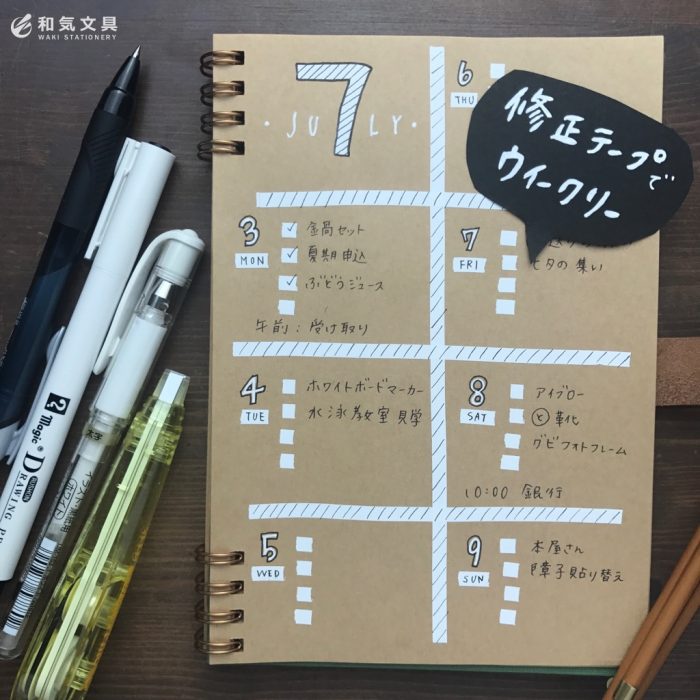 和気文具
WAKI STATIONERY
修正テープで
ウィークリー
7
・JULY・
3
MON
金局セット
夏期申込
ぶどうジュース
午前：受け取り
4
TUE
ホワイトボードマーカー
水泳教室見学
5
WED
6
THU
7
FRI
七夕の集い
8
SAT
アイブロー
と 革化
グビフォトフレーム
10:00 銀行
9
SUN
本屋さん
障子貼り替え
2
Magic
DRAWING PE
太字
イラスト・装飾用
ホワイト